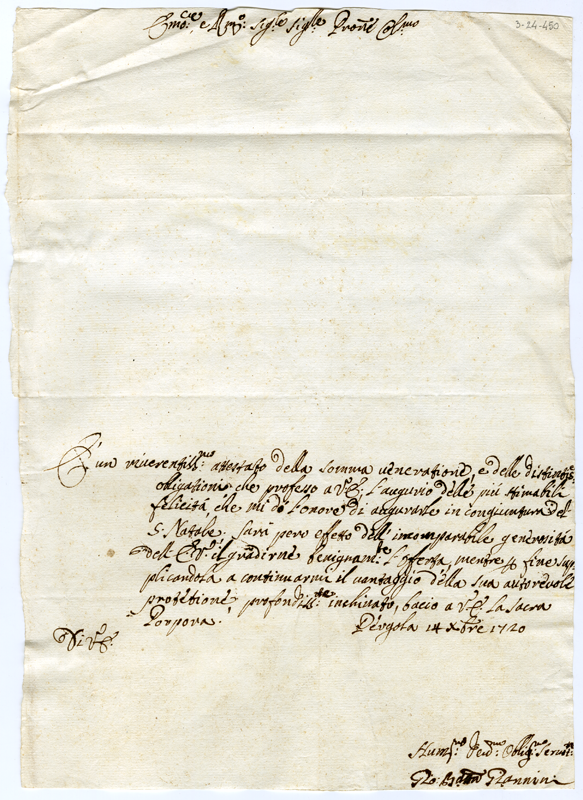 3-24-450
Em.mo, e R.mo Sig.re Sig.re Pron.e Col.mo
È un riverentiss.mo attestato della somma veneratione, e delle distintiss.e
obligationi che professo a V.E. l'augurio delle più stimabili
felicità, che mi dò l'onore di augurarle in congiuntura del
S. Natale. Sarà però effetto dell'incomparabile generosità
dell'E.V. il gradirne benignam.te l'offerta, mentre p fine sup
plicandola a continuarmi il vantaggio della sua autorevole
protettione, profondiss.te inchinato, bacio a V.E. la Sacra
Porpora.
Pergola 14 Xbre 1720
Di V.E.
Hum.mo Dev.mo Oblig.mo Servit.re
Gio: Batt'a Giannini